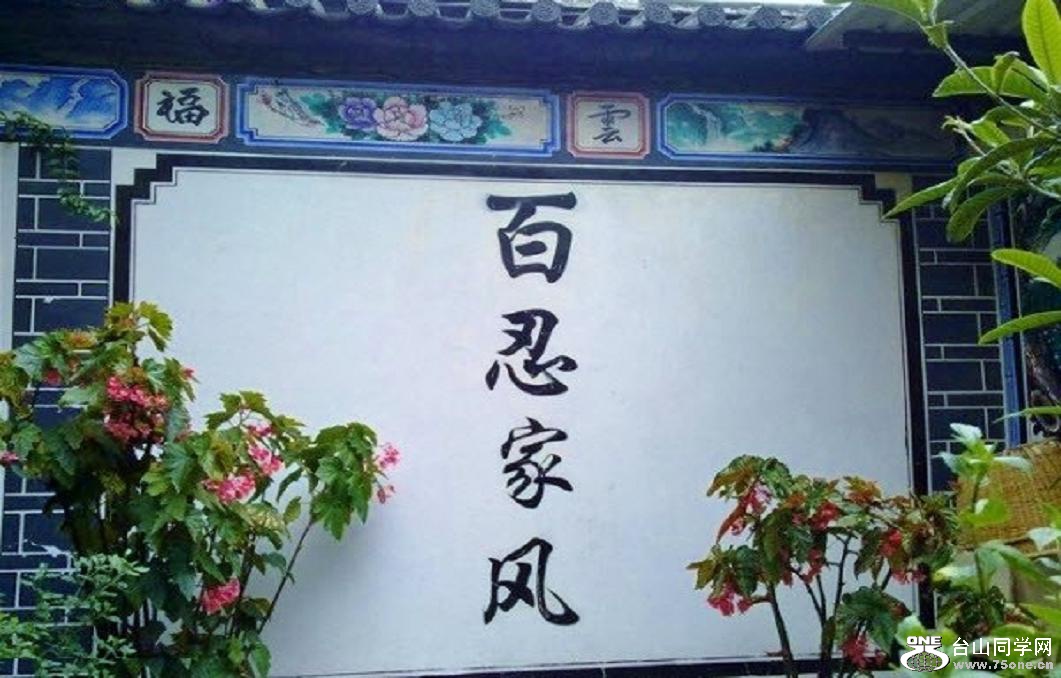 福
雲
百忍家风
ONE
台山同学网
www.75one.cn